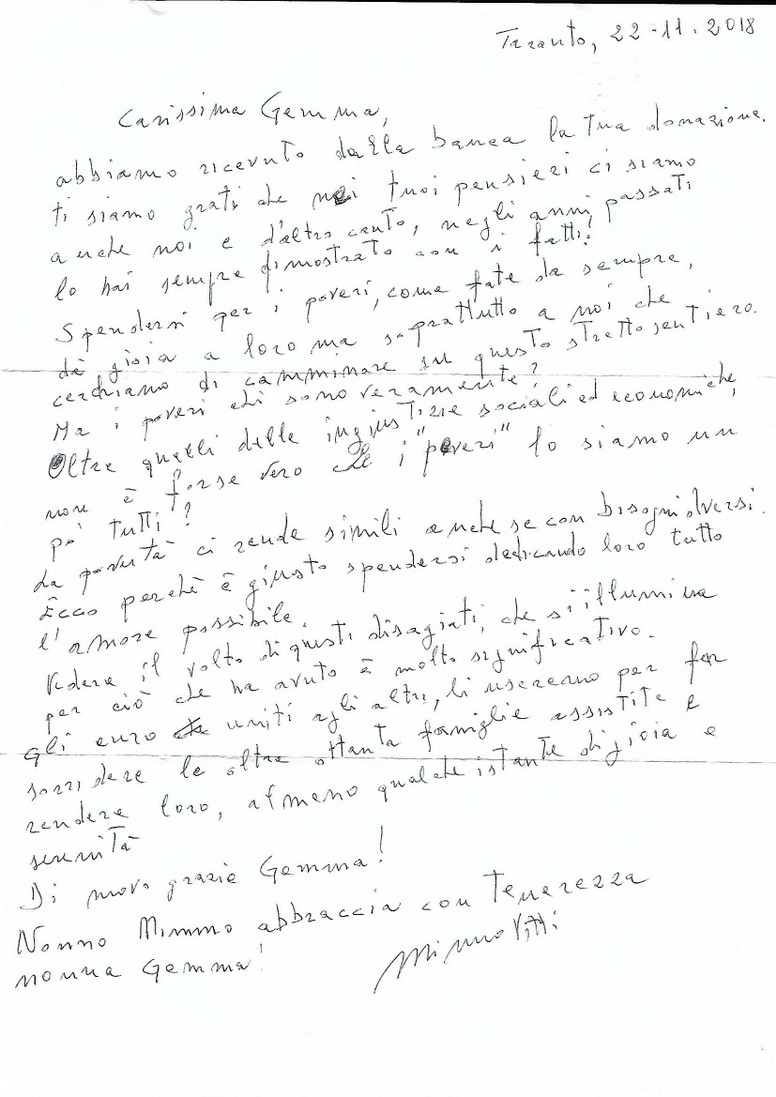 Taranto, 22-11.2018
Carissima Gemma,
abbiamo ricevuto dalla banca la tua donazione.
ti siamo grati che nei tuoi pensieri ci siamo
anche noi e d'altro canto, negli anni passati
lo hai sempre dimostrato con i fatti!
Spendersi per i poveri, come fate da sempre,
dà gioia a loro ma soprattutto a noi che
cerchiamo di camminare su questo stretto sentiero.
Ma i poveri chi sono veramente?
Oltre quelli delle ingiustizie sociali ed economiche,
non è forse vero che i "poveri" lo siamo un
pò tutti?
La povertà ci rende simili anche se con bisogni diversi.
Ecco perchè è giusto spendersi dedicando loro tutto
l'amore possibile.
Vedere il volto di questi disagiati, che si illumina
per ciò che ha avuto è molto significativo.
Gli euro uniti agli altri, li useremo per far
sorridere le oltre ottanta famiglie assistite e
rendere loro, almeno qualche istante di gioia e
serenità
Di nuovo grazie Gemma!
Nonno Mimmo abbraccia con tenerezza
nonna Gemma!
Mimmo Vitti